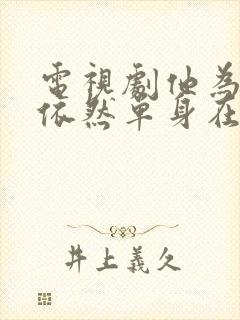 電視劇他為
依然單身在
井上義久